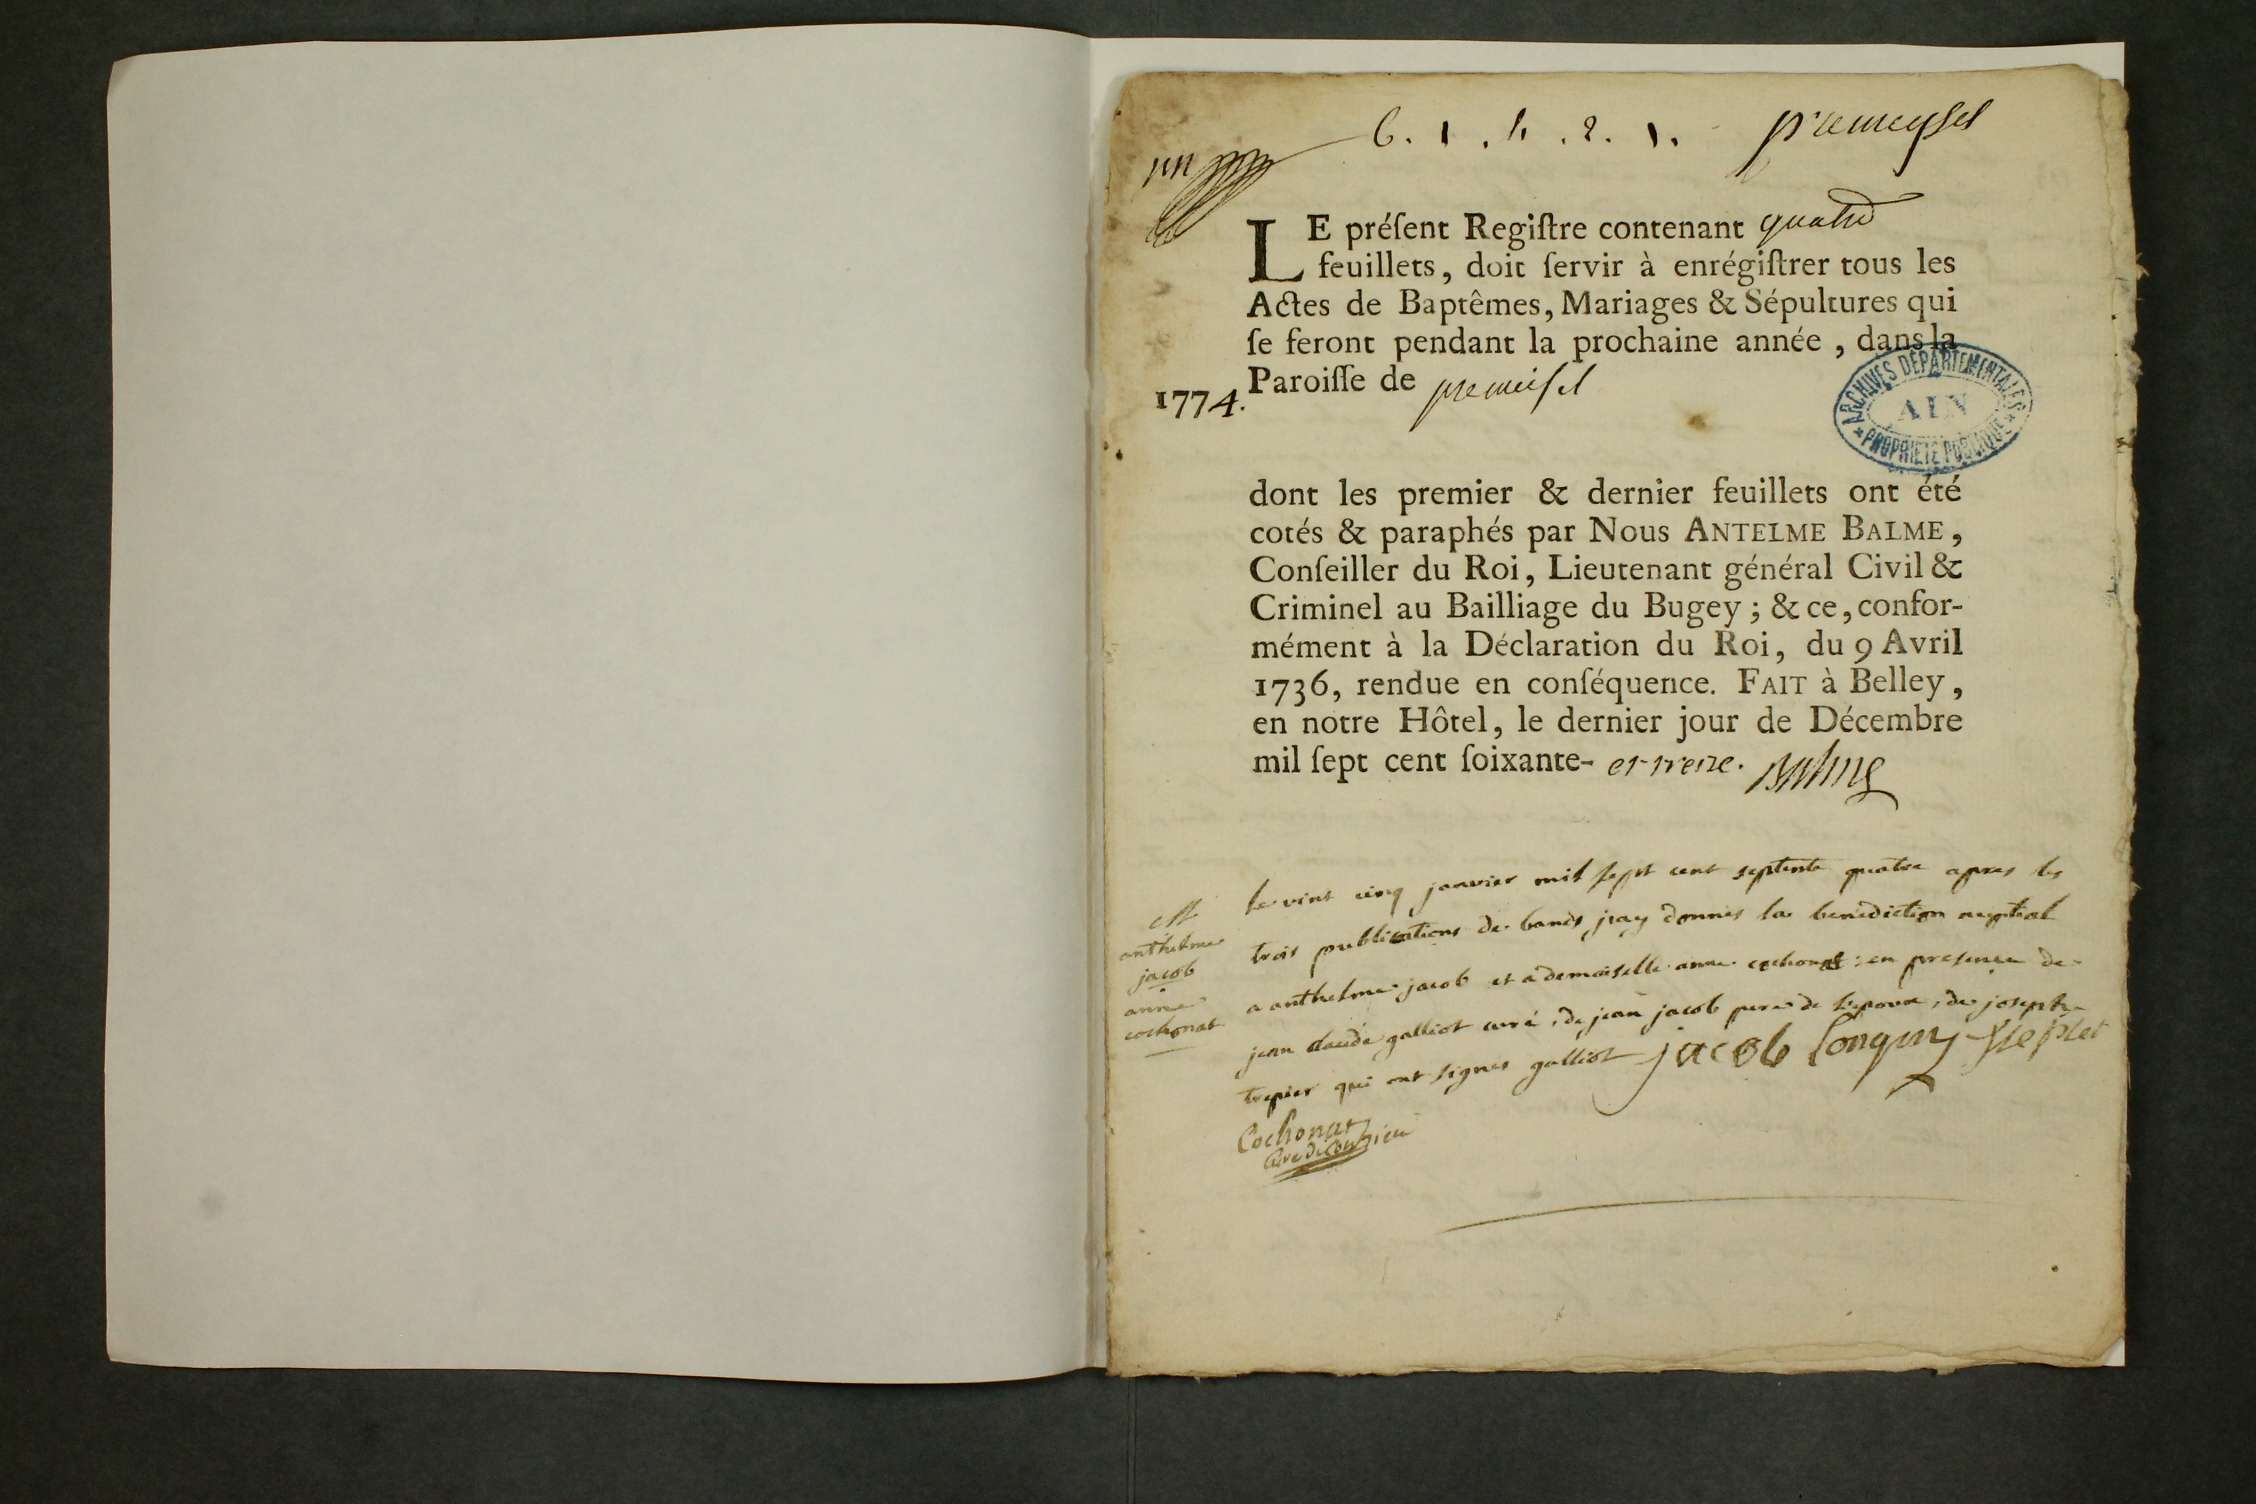 un
6. 1. 4. 2. 1. premeysel
LE préſent Regiſtre contenant quatre
feuillets, doit ſervir à enrégiſtrer tous les
Actes de Baptêmes, Mariages & Sépultures qui
ſe feront pendant la prochaine année, dans la
Paroiſſe de premeisel
1774.
ARCHIVES DÉPARTEMENTALES
AIN
PROPRIÉTÉ PUBLIQUE
dont les premier & dernier feuillets ont été
cotés & paraphés par Nous ANTELME BALME,
Conſeiller du Roi, Lieutenant général Civil &
Criminel au Bailliage du Bugey ; & ce, confor-
mément à la Déclaration du Roi, du 9 Avril
1736, rendue en conſéquence. FAIT à Belley,
en notre Hôtel, le dernier jour de Décembre
mil ſept cent ſoixante- et treize. Balme
anthelme
jacob
anne
cochonat
le vint cinq janvier mil sept cent septente quatre apres les
trois publications de bancs jray donnés la benediction nuptial
a anthelme jacob et a demoiselle anne cochonat : en presence de
jean claude galliot curé, de jean jacob pere de l'epoux, de joseph
trepier qui ont signes galliot jacob Longuy
Cochonat
curé de